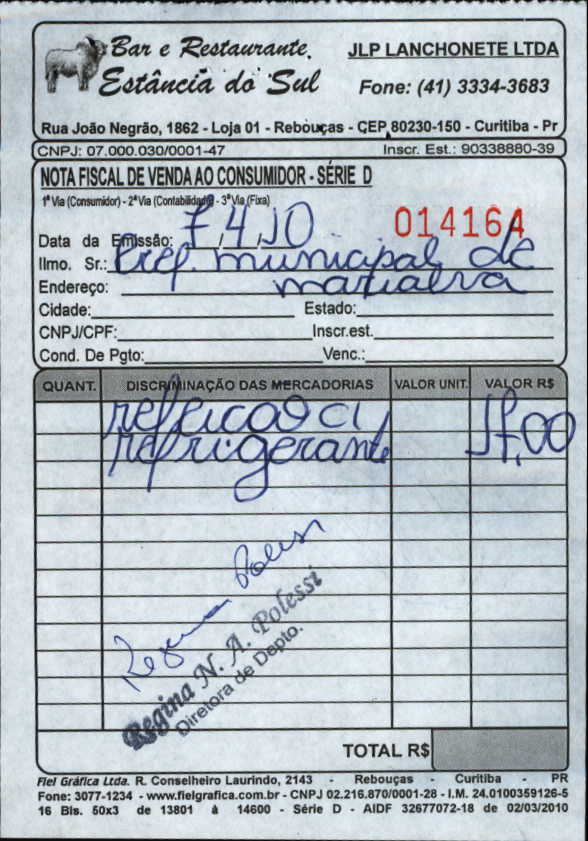 Bar e Restaurante
Estância do Sul
JLP LANCHONETE LTDA
Fone: (41) 3334-3683
Rua João Negrão, 1862 - Loja 01 - Rebouças - CEP 80230-150 - Curitiba - Pr
CNPJ: 07.000.030/0001-47 Inscr. Est.: 90338880-39
NOTA FISCAL DE VENDA AO CONSUMIDOR - SÉRIE D
1ª Via (Consumidor) - 2ª Via (Contabilidade) - 3ª Via (Fixa)
014164
Data da Emissão: 7/4/10
Ilmo. Sr.: Pref. municipal de
Endereço: marialva
Cidade: Estado:
CNPJ/CPF: Inscr.est.
Cond. De Pgto: Venc.:
QUANT. DISCRIMINAÇÃO DAS MERCADORIAS VALOR UNIT. VALOR R$
refeicao c/
refrigerante 17,00
Regina Polessi
Regina N. A. Polessi
Diretora de Depto.
TOTAL R$
Fiel Gráfica Ltda. R. Conselheiro Laurindo, 2143 - Rebouças - Curitiba - PR
Fone: 3077-1234 - www.fielgrafica.com.br - CNPJ 02.216.870/0001-28 - I.M. 24.0100359126-5
16 Bls. 50x3 de 13801 à 14600 - Série D - AIDF 32677072-18 de 02/03/2010